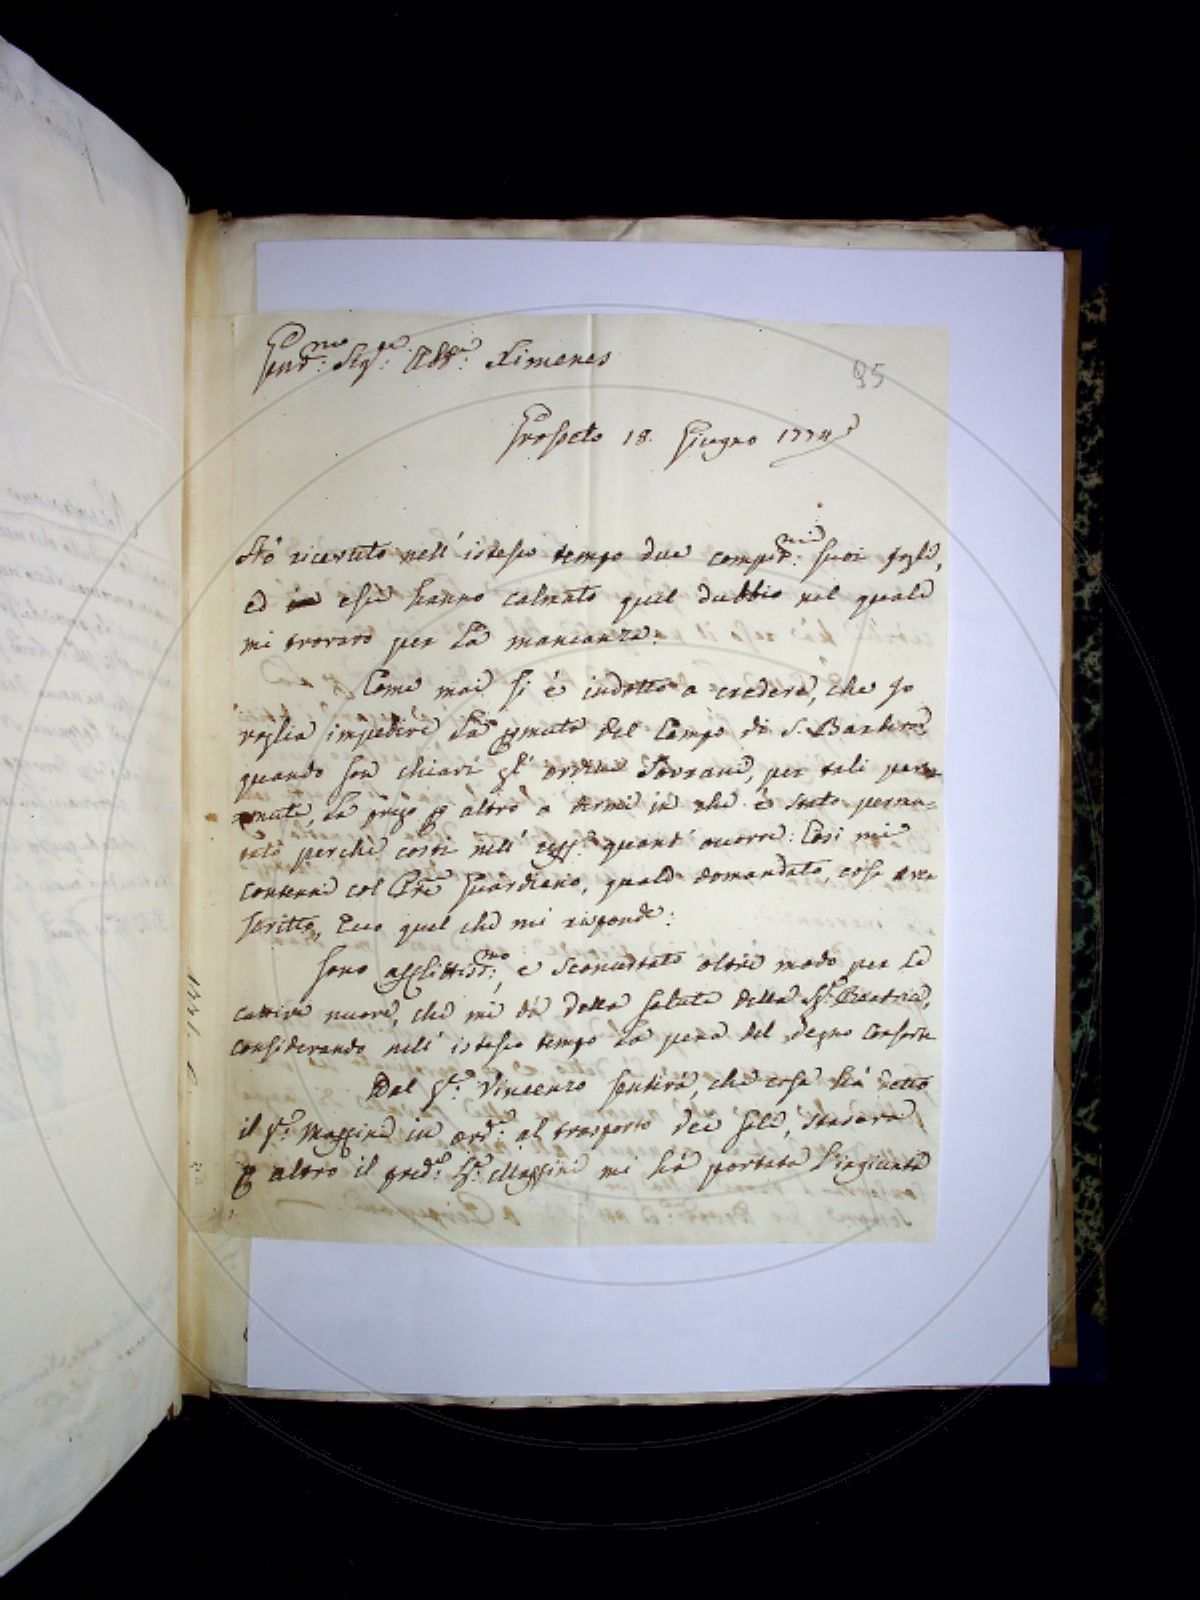 Pñd.mo Sig.re Abb.e Ximenes
95
Grosseto 18. Giugno 1774
Hò ricevuto nell' istesso tempo due compit.mi suoi fogli,
ed essi hanno calmato quel dubbio nel quale
mi trovavo per la mancanza.
Come mai si è indotto a credere, che Io
voglia impedire la pmuta del Campo di S. Barbera,
quando son chiari gl' ordini Sovrani, per tali per-
mute, La prego p altro a dirmi in che è stato permu-
tato perchè costì nell' quant' occorre: Così mi
contenni col Pre Guardiano, quale domandato, cosa avea
scritto, Ecco quel che mi risponde:
Sono afflittiss.mo, e sconcertato oltre modo per le
cattive nuove, che mi dà della salute della Sig.ra Beatrice,
considerando nell' istesso tempo la pena del degno Consorte
Dal S.r Vincenzo sentirà, che cosa hà detto
il S.r Massini in ord.e al trasporto dei Sali, stasera
p altro il pred.o S.r Massini mi hà portata l'ingiunta